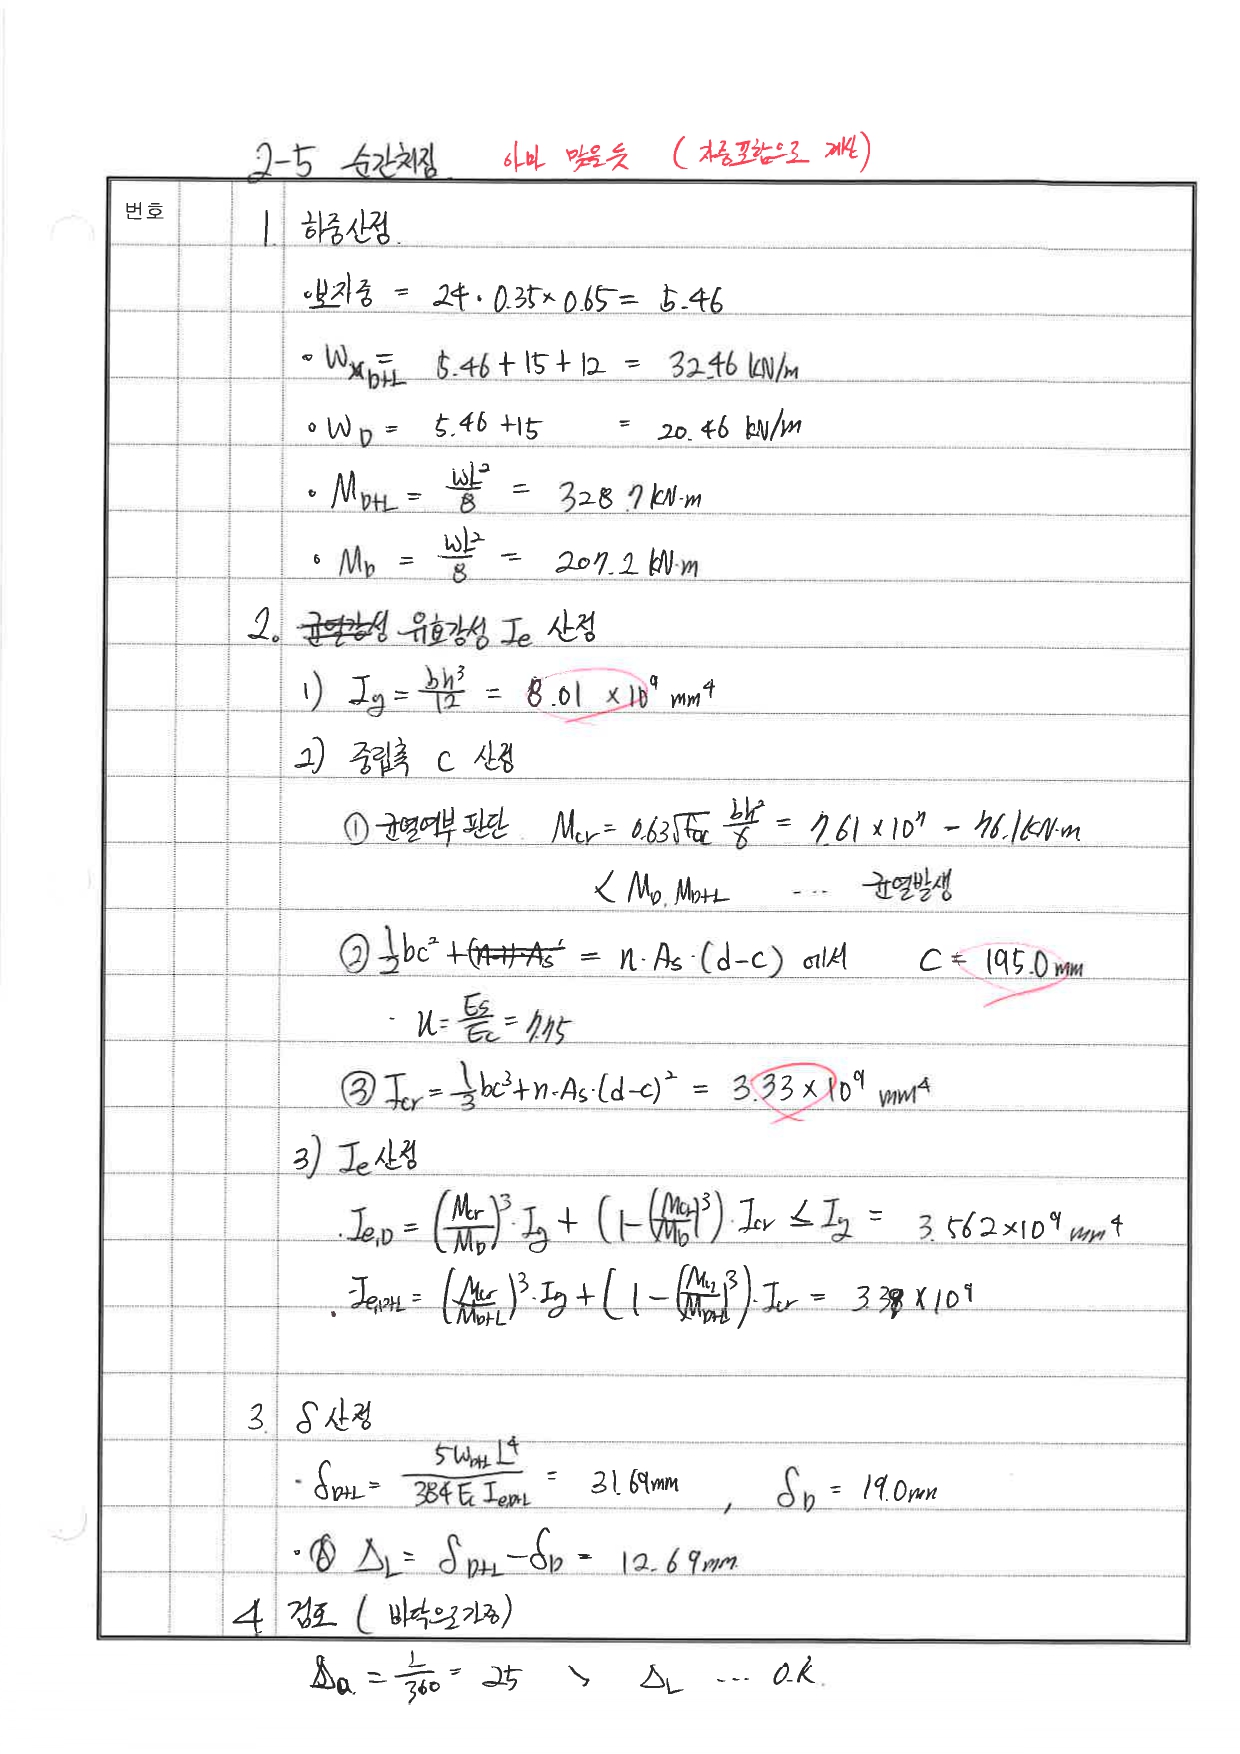 2-5 순간처짐. 아마 맞을듯 (자중포함으로 계산)
번호
1. 하중산정.
·보자중 = 24·0.35×0.65 = 5.46
· W D+L = 5.46+15+12 = 32.46 kN/m
· W_D = 5.46+15 = 20.46 kN/m
· M_D+L = wL²/8 = 328.7 kN·m
· M_D = wL²/8 = 207.2 kN·m
2. 균열강성 유효강성 Ie 산정
1) Ig = bh³/12 = 8.01 ×10⁹ mm⁴
2) 중립축 C 산정
① 균열여부 판단 Mcr = 0.63√fck bh²/6 = 7.61×10⁷ - 76.1kN·m
< M_D, M_D+L ... 균열발생
② 1/2bc² + (n-1)·As' = n·As·(d-c) 에서 C = 195.0mm
· n = Es/Ec = 7.75
③ Icr = 1/3bc³+n·As·(d-c)² = 3.33×10⁹ mm⁴
3) Ie 산정
·Ie,D = (Mcr/M_D)³·Ig + (1-(Mcr/M_D)³)·Icr ≤ Ig = 3.562×10⁹ mm⁴
·Ie,D+L = (Mcr/M_D+L)³·Ig + (1-(Mcr/M_D+L)³)·Icr = 3.38×10⁹
3. δ 산정
· δ_D+L = 5W_D+L L⁴/384 Ec Ie,D+L = 31.69mm , δ_D = 19.0mm
· Δ_L = δ_D+L - δ_D = 12.69mm
4 검토 (바닥으로가정)
Δa = L/360 = 25 > Δ_L ... O.K.